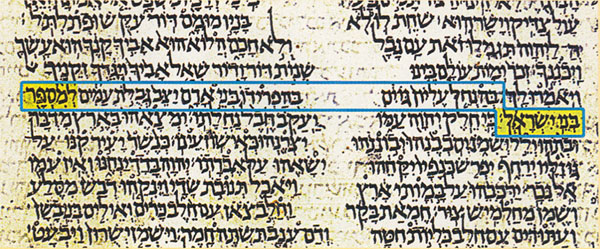 עול צדיק וישר הוא שחת לו לא בניו מומם דור עקש ופתלתל
ה ליהוה תגמלו זאת עם נבל ולא חכם הלוא הוא אביך קנך הוא עשך
ויכננך זכר ימות עולם בינו שנות דור ודור שאל אביך ויגדך זקניך
ויאמרו לך בהנחל עליון גוים בהפרידו בני אדם יצב גבלת עמים למספר
בני ישראל כי חלק יהוה עמו יעקב חבל נחלתו ימצאהו בארץ מדבר
ובתהו ילל ישמן יסבבנהו יבוננהו יצרנהו כאישון עינו כנשר יעיר קנו על
גוזליו ירחף יפרש כנפיו יקחהו ישאהו על אברתו יהוה בדד ינחנו ואין עמו
אל נכר ירכבהו על במותי ארץ ויאכל תנובת שדי וינקהו דבש מסלע
ושמן מחלמיש צור חמאת בקר וחלב צאן עם חלב כרים ואילים בני בשן
ועתודים עם חלב כליות חטה ודם ענב תשתה חמר וישמן ישרון ויבעט